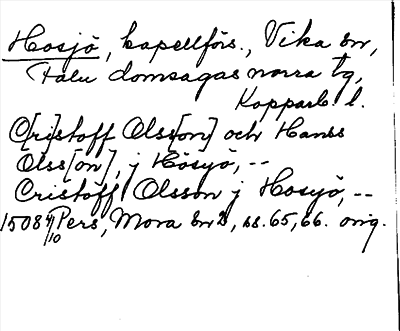 Hosjö, kapellförs., Vika sn,
Falu domsagas norra tg,
Kopparb. l.
C[ri]stoff Olss[on] och Hanss
Olss[on], j Hosyö, --
Cristoff Olsson j Hosyö, --
1508 4/10 Pers, Mora sn 2, ss. 65, 66. orig.